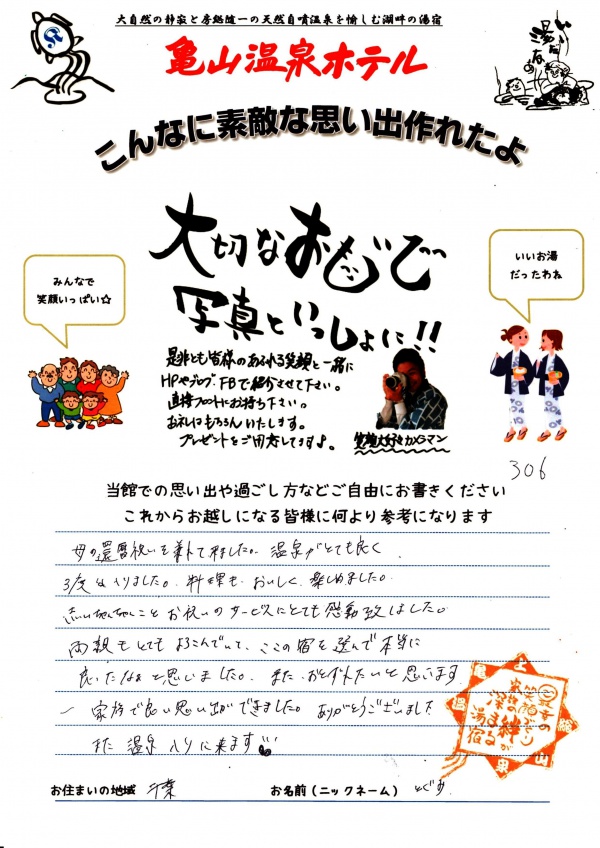 大自然の静寂と房総随一の天然自噴温泉を愉しむ湖畔の湯宿
亀山温泉ホテル
いい湯だなぁ
こんなに素敵な思い出作れたよ
大切なおもいで
写真といっしょに!!
みんなで
笑顔いっぱい☆
いいお湯
だったわね
是非とも皆様のあふれる笑顔と一緒に
HPやブログ、FBで紹介させて下さい。
直接フロントにお持ち下さい。
お礼はもちろんいたします。
プレゼントをご用意してます♪。
笑顔大好きカメラマン
306
当館での思い出や過ごし方などご自由にお書きください
これからお越しになる皆様に何より参考になります
母の還暦祝いを兼ねて来ました。温泉がとても良く、
3度も入りました。料理も、おいしく、楽しめました。
赤いちゃんちゃんことお祝いのサービスにとても感動致しました。
両親もとてもよろこんでいて、ここの宿を選んで本当に
良かったなぁと思いました。また、おとずれたいと思います
家族で良い思い出ができました。ありがとうございました
また温泉入りに来ます
お住まいの地域 千葉
お名前(ニックネーム)